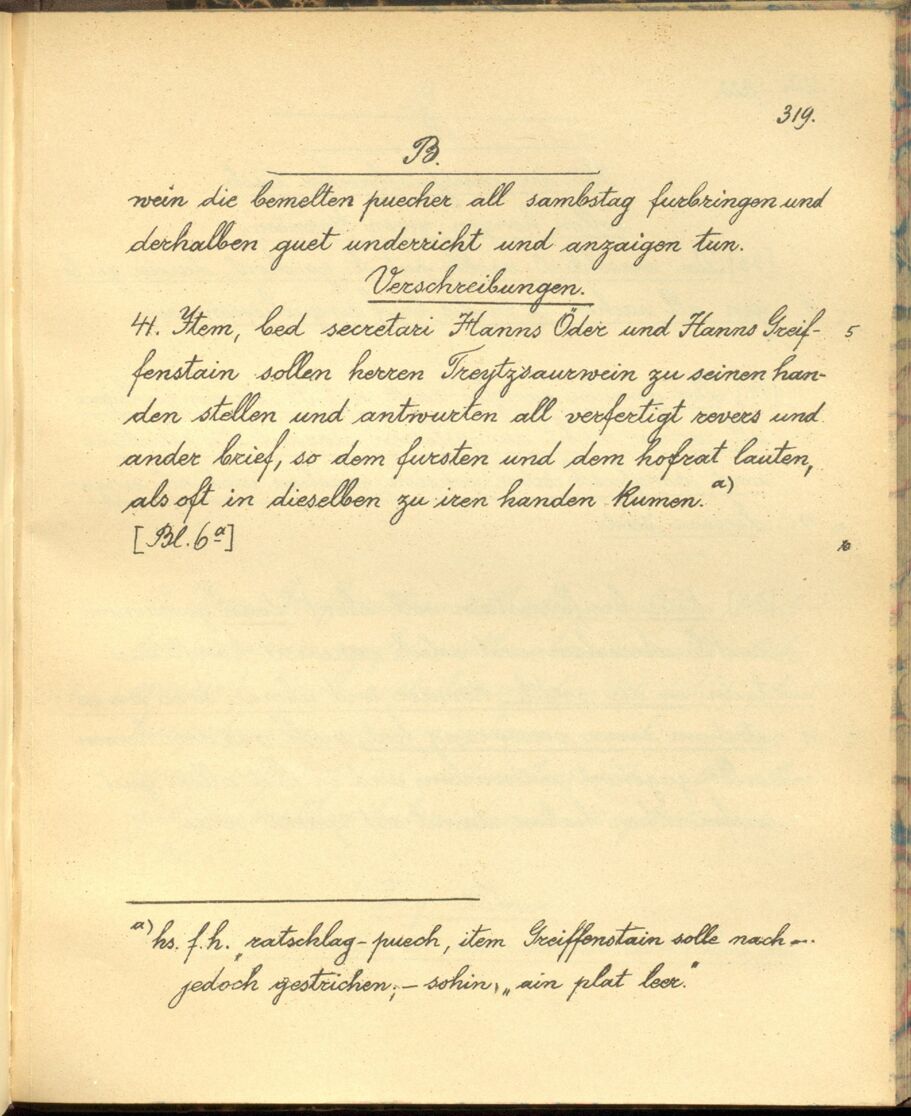 319.
B.
wein die bemelten puecher all sambstag furbringen und
derhalben guet underricht und anzaigen tun.
Verschreibungen.
41. Item, bed secretari Hanns Öder und Hanns Greif- 5
fenstain sollen herren Treytzsaurwein zu seinen han-
den stellen und antwurten all verfertigt revers und
ander brief, so dem fursten und dem hofrat lauten,
als oft in dieselben zu iren handen kumen. a)
[Bl. 6a] 10
a) hs. f. h. "ratschlag-puech, item Greiffenstain solle nach -..
jedoch gestrichen; – sohin, „ain plat leer."